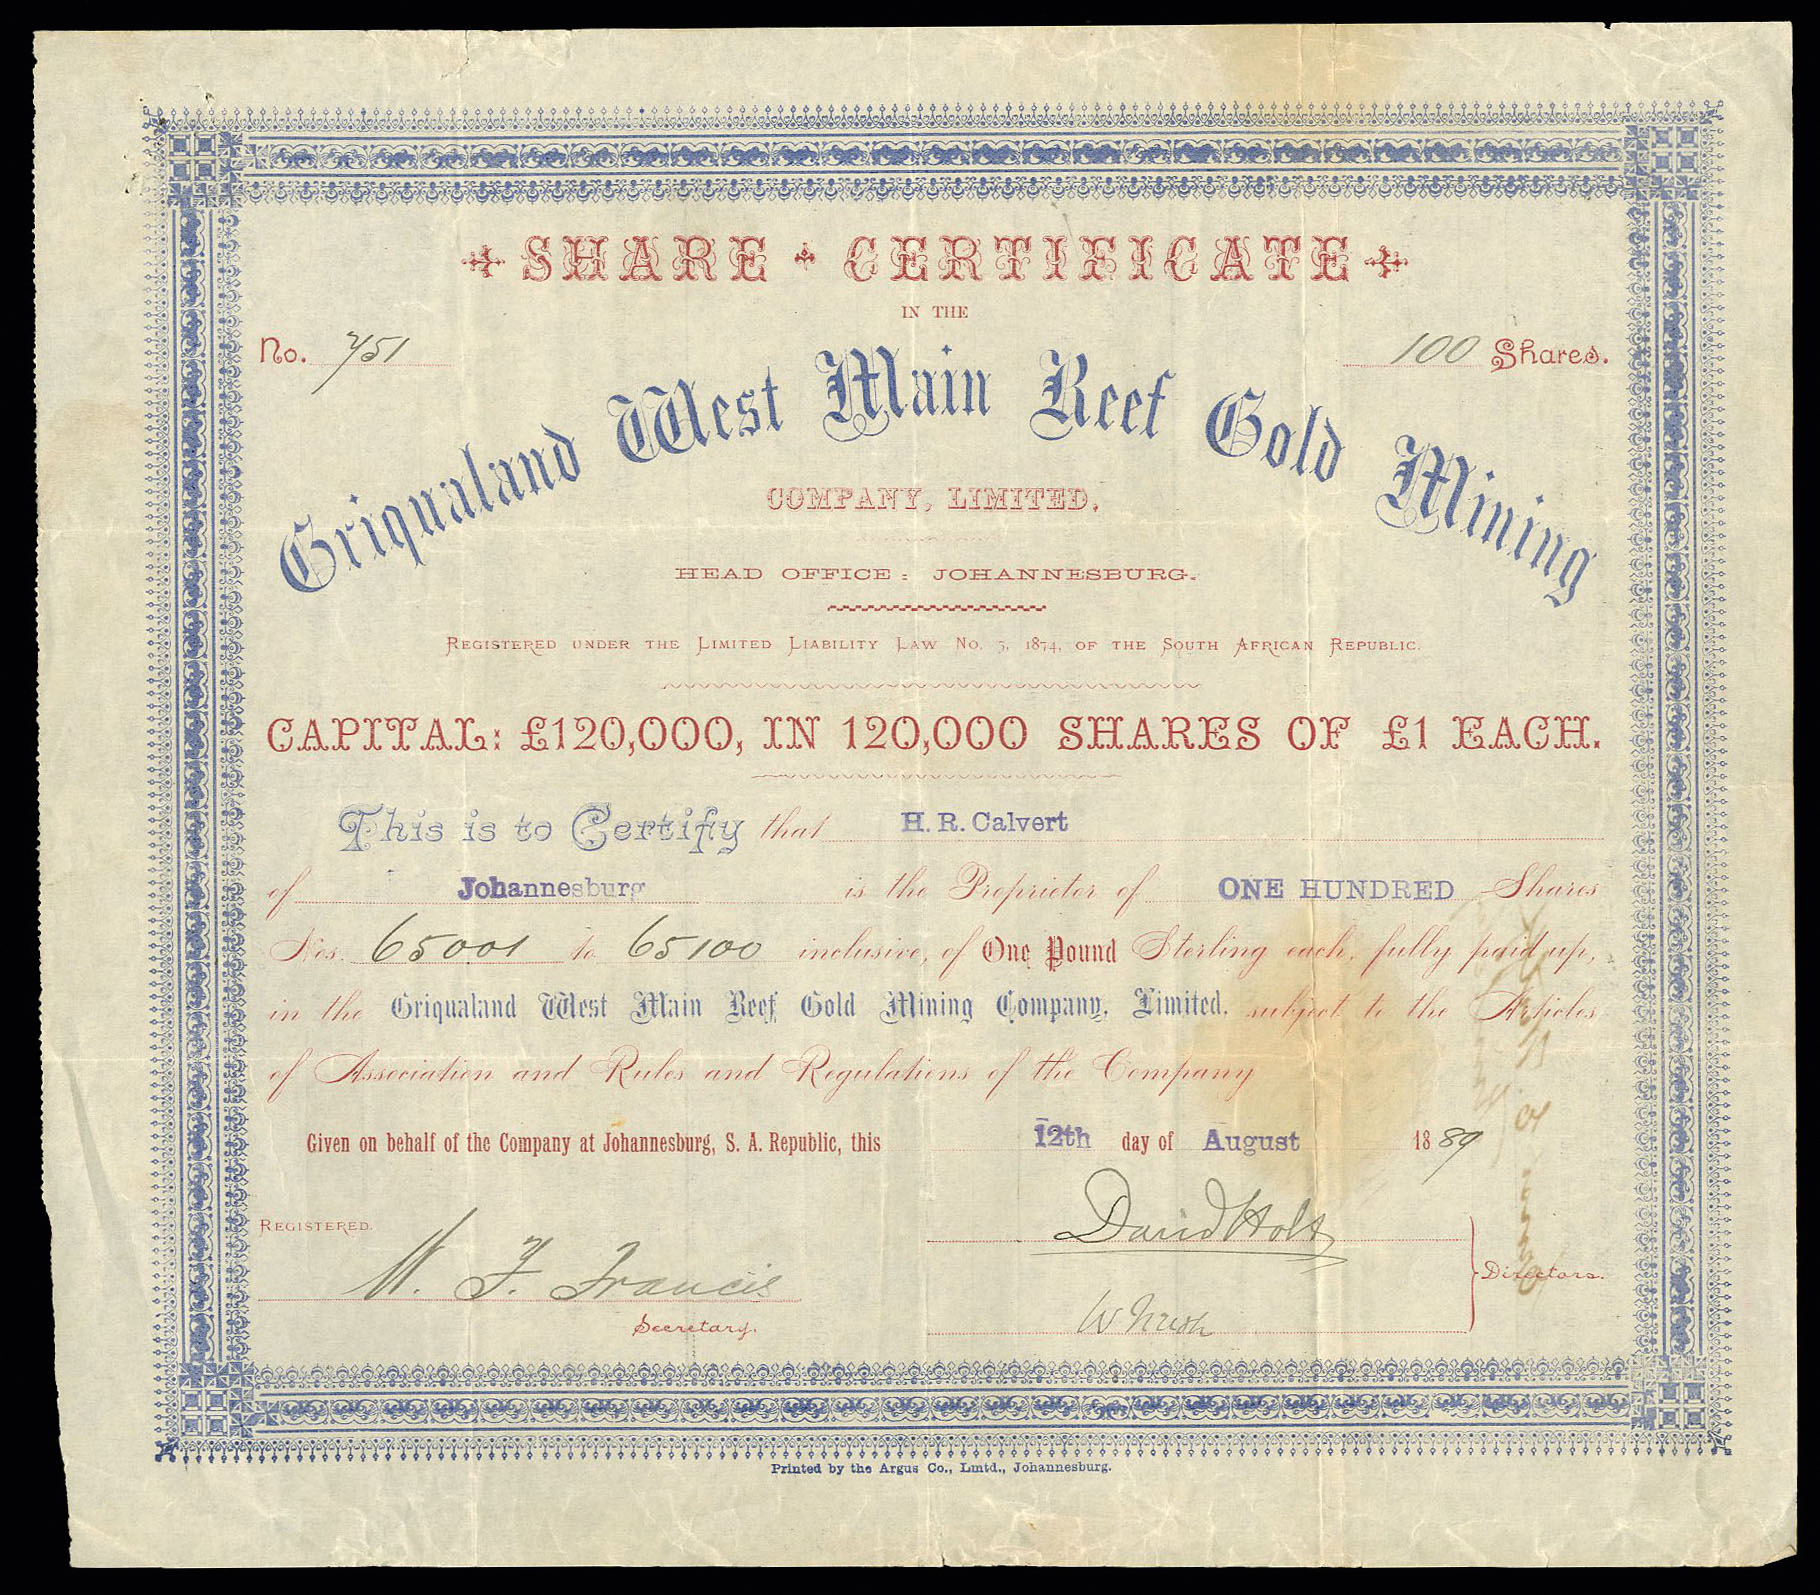 SHARE CERTIFICATE
IN THE
No. 751
100 Shares.
Griqualand West Main Reef Gold Mining
COMPANY, LIMITED.
HEAD OFFICE: JOHANNESBURG.
REGISTERED UNDER THE LIMITED LIABILITY LAW NO. 5, 1874, OF THE SOUTH AFRICAN REPUBLIC.
CAPITAL: £120,000, IN 120,000 SHARES OF £1 EACH.
This is to Certify that H. R. Calvert
of Johannesburg is the Proprietor of ONE HUNDRED Shares
Nos. 65001 to 65100 inclusive, of One Pound Sterling each, fully paid up,
in the Griqualand West Main Reef Gold Mining Company, Limited, subject to the Articles
of Association and Rules and Regulations of the Company
Given on behalf of the Company at Johannesburg, S. A. Republic, this 12th day of August 1889
REGISTERED.
David Holt
W. F. Francis
Directors.
Secretary.
Printed by the Argus Co., Lmtd., Johannesburg.